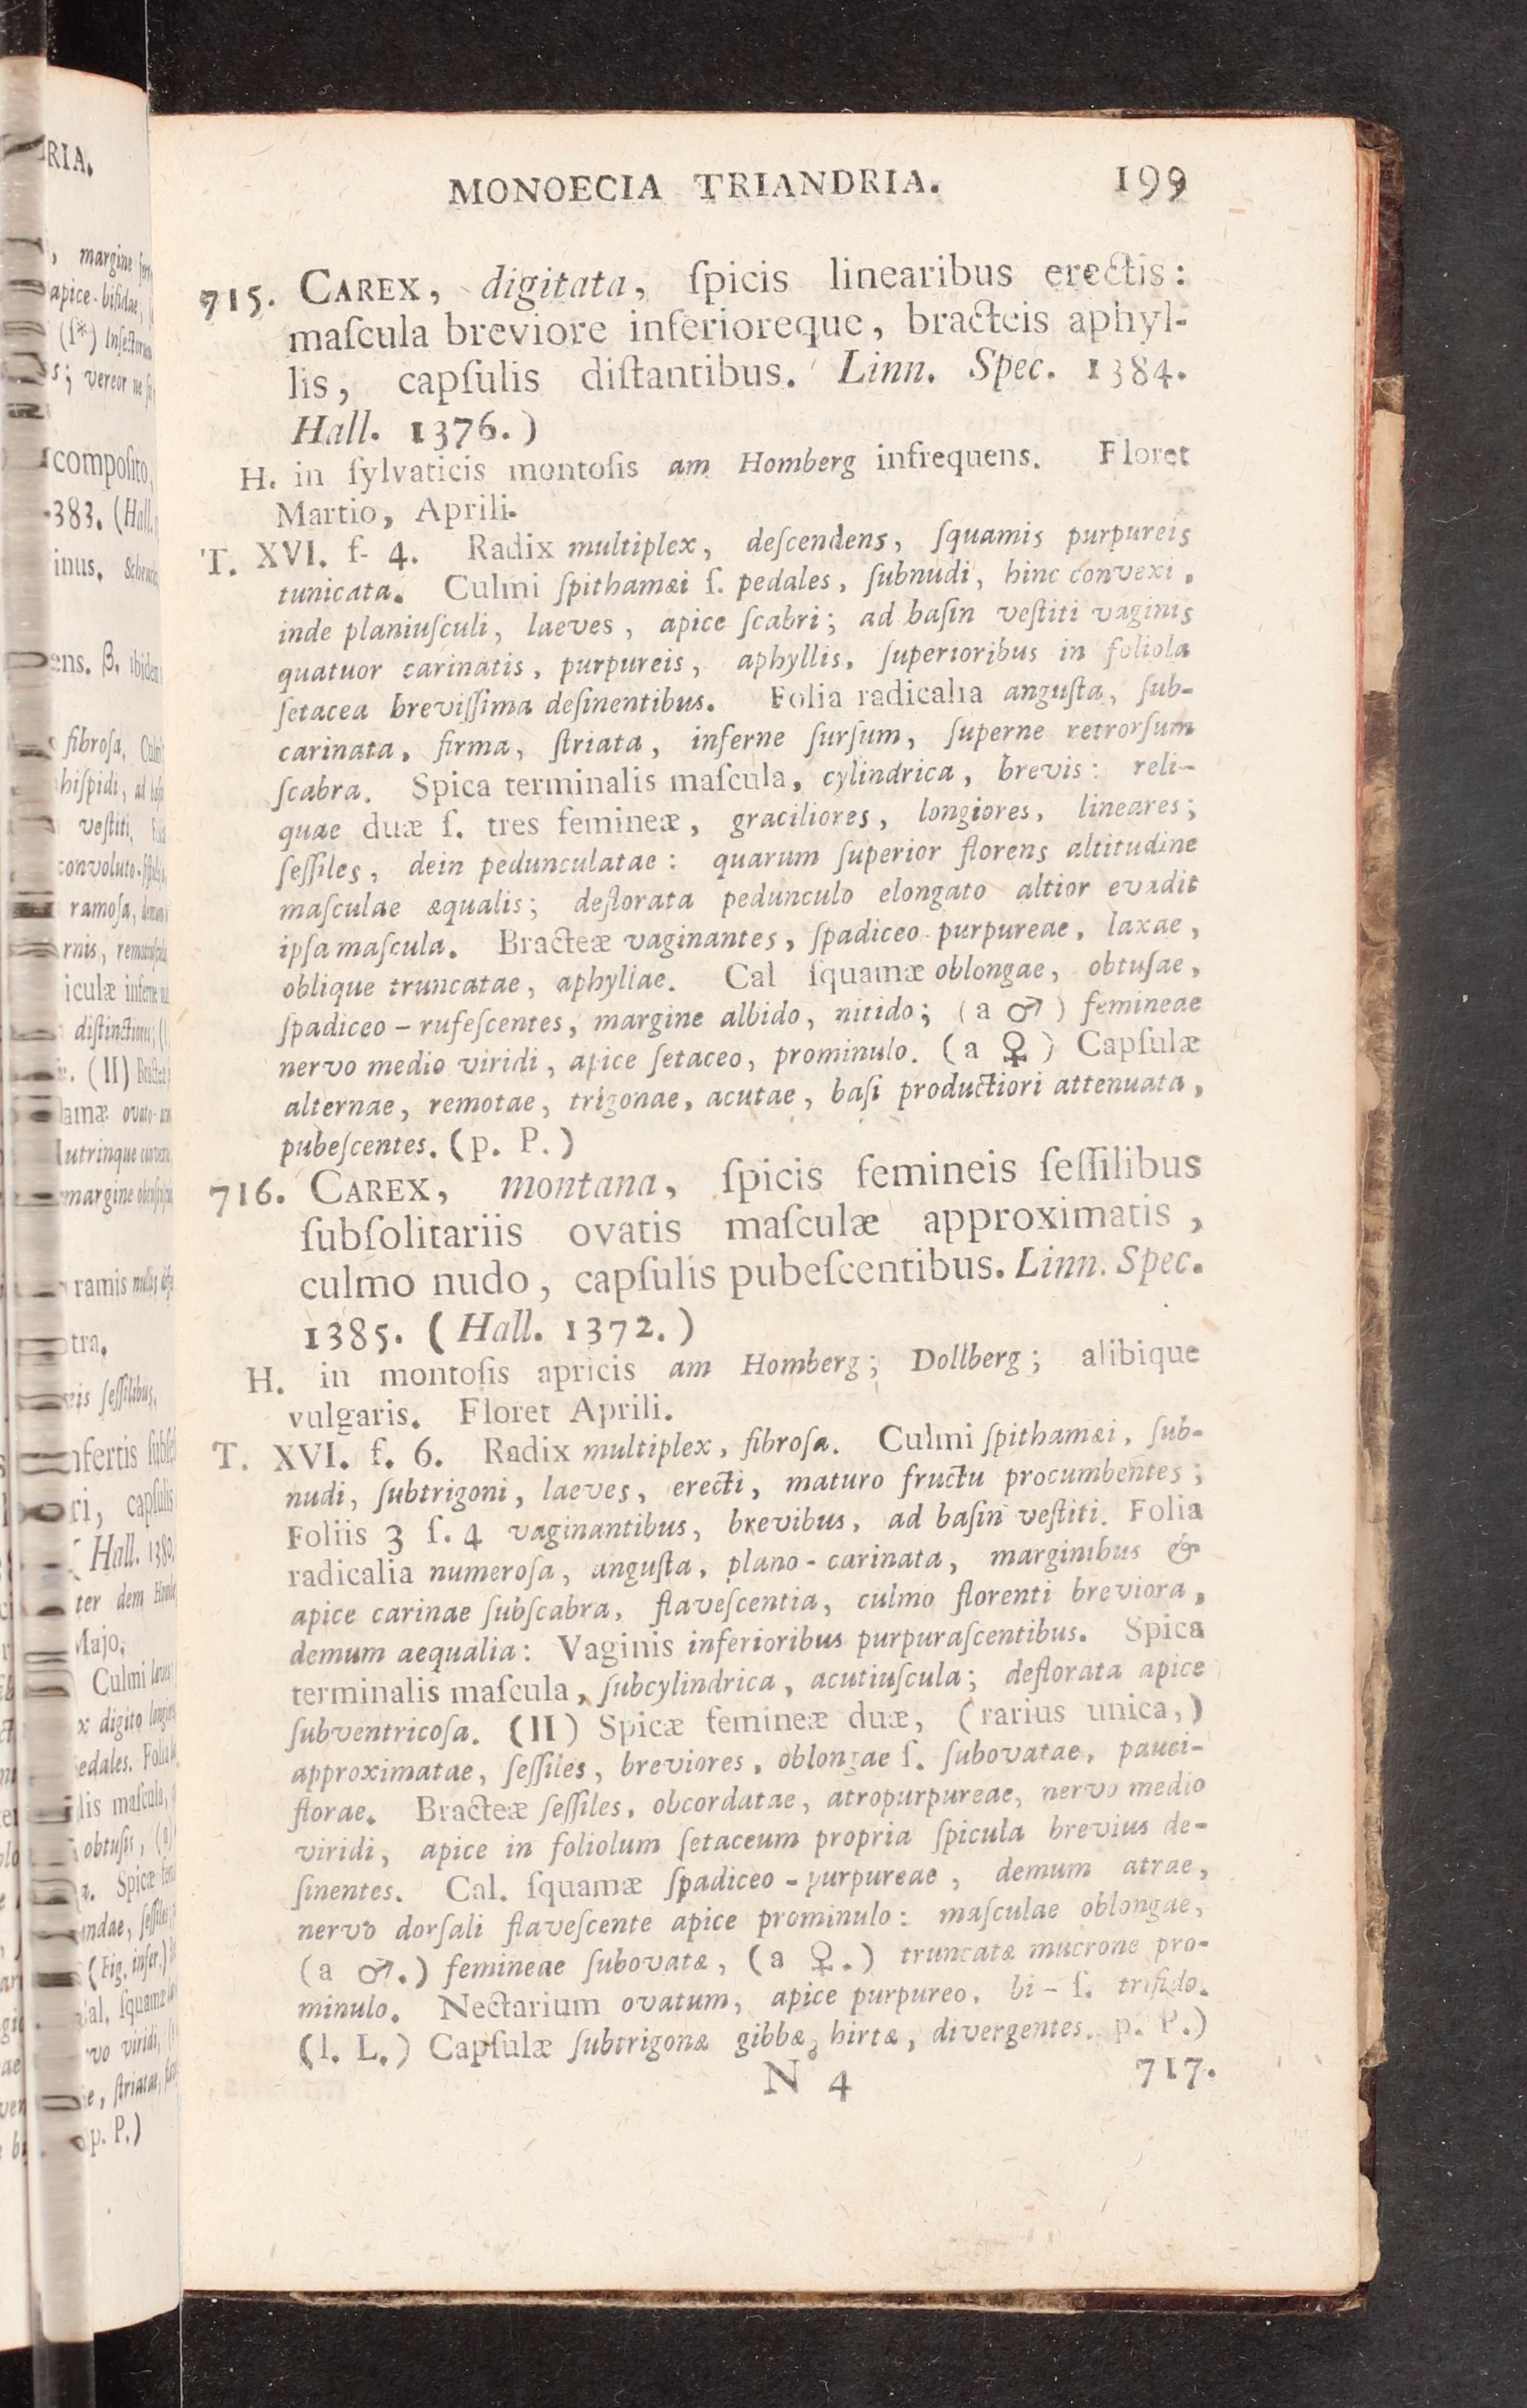 MONOECIA TRIANDRIA. 199
715. CAREX, digitata, ſpicis linearibus erectis:
maſcula breviore inferioreque, bracteis aphyl-
lis, capſulis diſtantibus. Linn. Spec. 1384.
Hall. 1376.)
H. in ſylvaticis montoſis am Homberg infrequens. Floret
Martio, Aprili.
T. XVI. f. 4. Radix multiplex, deſcendens, ſquamis purpureis
tunicata. Culmi ſpithamæi ſ. pedales, ſubnudi, hinc convexi,
inde planiuſculi, laeves, apice ſcabri; ad baſin veſtiti vaginis
quatuor carinatis, purpureis, aphyllis, ſuperioribus in foliola
ſetacea breviſſima deſinentibus. Folia radicalia anguſta, ſub-
carinata, firma, ſtriata, inferne ſurſum, ſuperne retrorſum
ſcabra. Spica terminalis maſcula, cylindrica, brevis: reli-
quae duæ ſ. tres femineæ, graciliores, longiores, lineares;
ſeſſiles, dein pedunculatae: quarum ſuperior florens altitudine
maſculae æqualis; deflorata pedunculo elongato altior evadit
ipſa maſcula. Bracteæ vaginantes, ſpadiceo-purpureae, laxae,
oblique truncatae, aphyllae. Cal ſquamæ oblongae, obtuſae,
ſpadiceo-rufeſcentes, margine albido, nitido; (a ♂) femineae
nervo medio viridi, apice ſetaceo, prominulo. (a ♀) Capſulæ
alternae, remotae, trigonae, acutae, baſi productiori attenuata,
pubeſcentes. (p. P.)
716. CAREX, montana, ſpicis femineis ſeſſilibus
ſubſolitariis ovatis maſculæ approximatis,
culmo nudo, capſulis pubeſcentibus. Linn. Spec.
1385. (Hall. 1372.)
H. in montoſis apricis am Homberg; Dollberg; alibique
vulgaris. Floret Aprili.
T. XVI. f. 6. Radix multiplex, fibroſa. Culmi ſpithamæi, ſub-
nudi, ſubtrigoni, laeves, erecti, maturo fructu procumbentes;
Foliis 3 ſ. 4 vaginantibus, brevibus, ad baſin veſtiti. Folia
radicalia numeroſa, anguſta, plano-carinata, marginibus &
apice carinae ſubſcabra, flaveſcentia, culmo florenti breviora,
demum aequalia: Vaginis inferioribus purpuraſcentibus. Spica
terminalis maſcula, ſubcylindrica, acutiuſcula; deflorata apice
ſubventricoſa. (II) Spicæ femineæ duæ, (rarius unica,)
approximatae, ſeſſiles, breviores, oblongae ſ. ſubovatae, pauci-
florae. Bracteæ ſeſſiles, obcordatae, atropurpureae, nervo medio
viridi, apice in foliolum ſetaceum propria ſpicula brevius de-
ſinentes. Cal. ſquamæ ſpadiceo-purpureae, demum atrae,
nervo dorſali flaveſcente apice prominulo: maſculae oblongae,
(a ♂.) femineae ſubovatæ, (a ♀.) truncatæ mucrone pro-
minulo. Nectarium ovatum, apice purpureo, bi-ſ. trifido.
(l. L.) Capſulæ ſubtrigonæ gibbæ, hirtæ, divergentes. p. P.)
N 4 717.